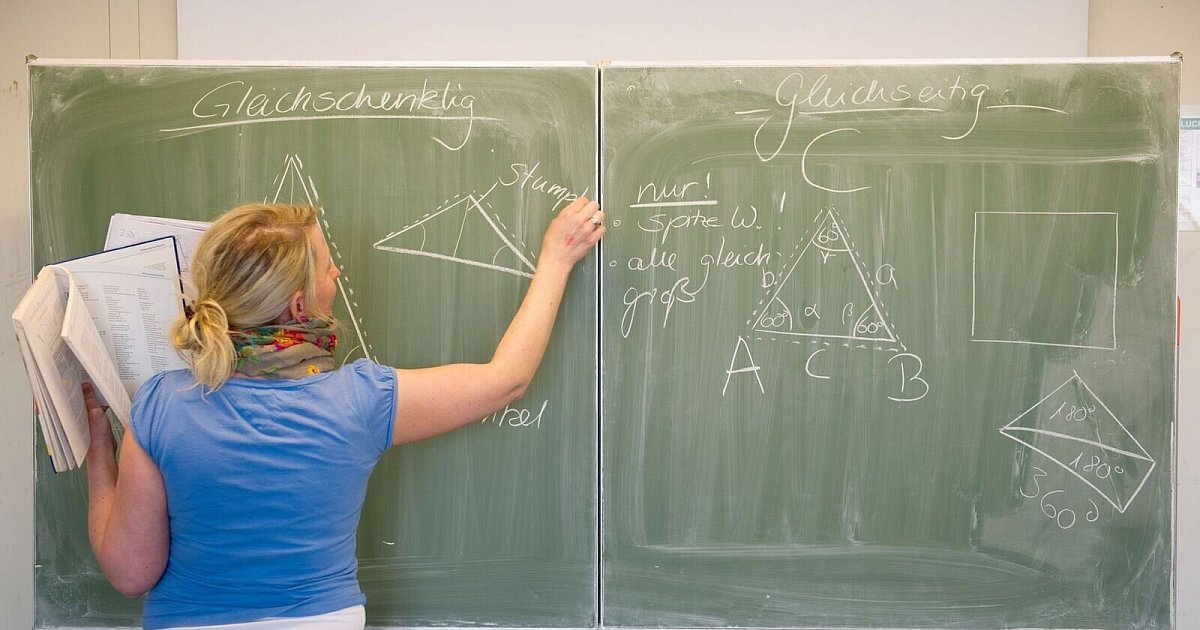 Gleichschenklig
stumpf
Gleichseitig
C
nur!
• spitze W.!
• alle gleich
groß
60°
γ
b
a
60°
α
β
60°
A
C
B
180°
180°
360°